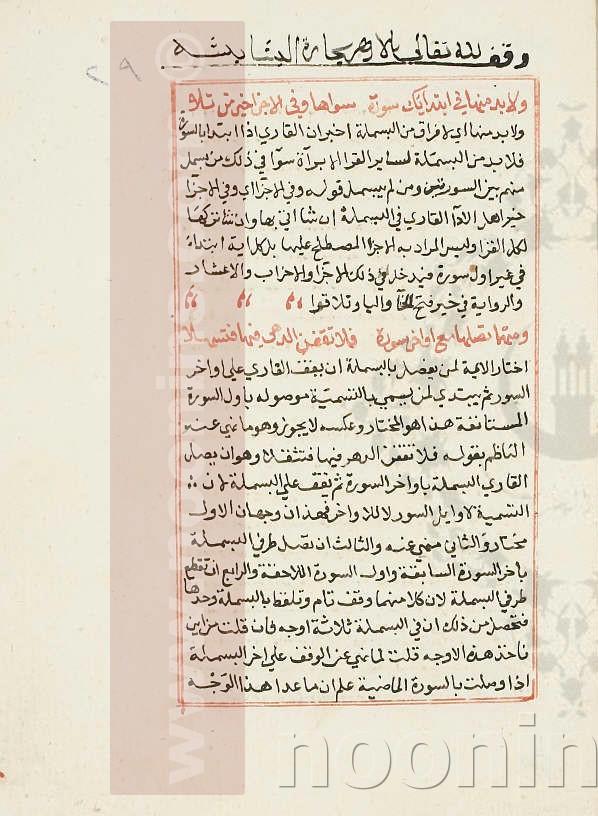 وقف لله تعالى بالازهر بحارة الدشا بشه
٢٩
ولابد منها في ابتدائك سورة سواها وفي الاجزا خير من تلا
ولا بد منها اي لا فراق من البسملة اخبر ان القاري اذا ابتدا بالسورة
فلابد من البسملة لساير القرا الا براة سوا في ذلك من بسمل
منهم بين السورتين ومن لم يبسمل قوله وفي الاجزا اي وفي الاجزا
خير اهل الادا القاري في البسملة ان شا اتي بها وان شا تركها
لكل القرا وليس المراد به الاجزا المصطلح عليها بل كل اية ابتداء
في غير اول سورة فيدخل في ذلك الاجزا والاحزاب والاعشار
والرواية في خير فتح الخا واليا وتلا قوا
ومهما تصلها مع اواخر سورة فلا تقفن الدهر فيها فتثقلا
اختار الايمة لمن يفصل بالبسملة ان يقف القاري علي واخر
السور ثم يبتدي لمن يسمي بالتسمية موصوله باول السورة
المستانفة هذا هو المختار وعكسه لا يجوز وهو ما نهي عنه
الناظم بقوله فلا تقفن الدهر فيها فتثقلا وهو ان يصل
القاري البسملة باواخر السورة ثم يقف علي البسملة لان
التسمية لاوايل السور لا للاواخر فهذان وجهان الاول
مختار والثاني منهي عنه والثالث ان تصل طرفي البسملة
باخر السورة السابقة واول السورة اللاحقة والرابع ان تقطع
طرفي البسملة لان كلا منهما وقف تام وتلفظ بالبسملة وحدها
فتحصل من ذلك ان في البسملة ثلاثة اوجه فان قلت من اين
ناخذ هذه الاوجه قلت لما نهي عن الوقف علي اخر البسملة
اذا وصلت بالسورة الماضية علم ان ما عدا هذا الوجه
noonin